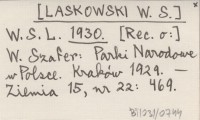 [LASKOWSKI W. S.]
W. S. L. 1930. [Rec. o:]
W. Szafer: Parki Narodowe
w Polsce. Kraków 1929. —
Ziemia 15, nr 22: 469.